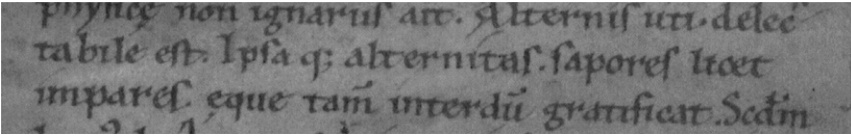 phisicę non ignarus ait. Alternis uti. delec
tabile est. Ipsa q; alternitas. sapores licet
impares. eque tam̄ interdū gratificat. Scd̄m